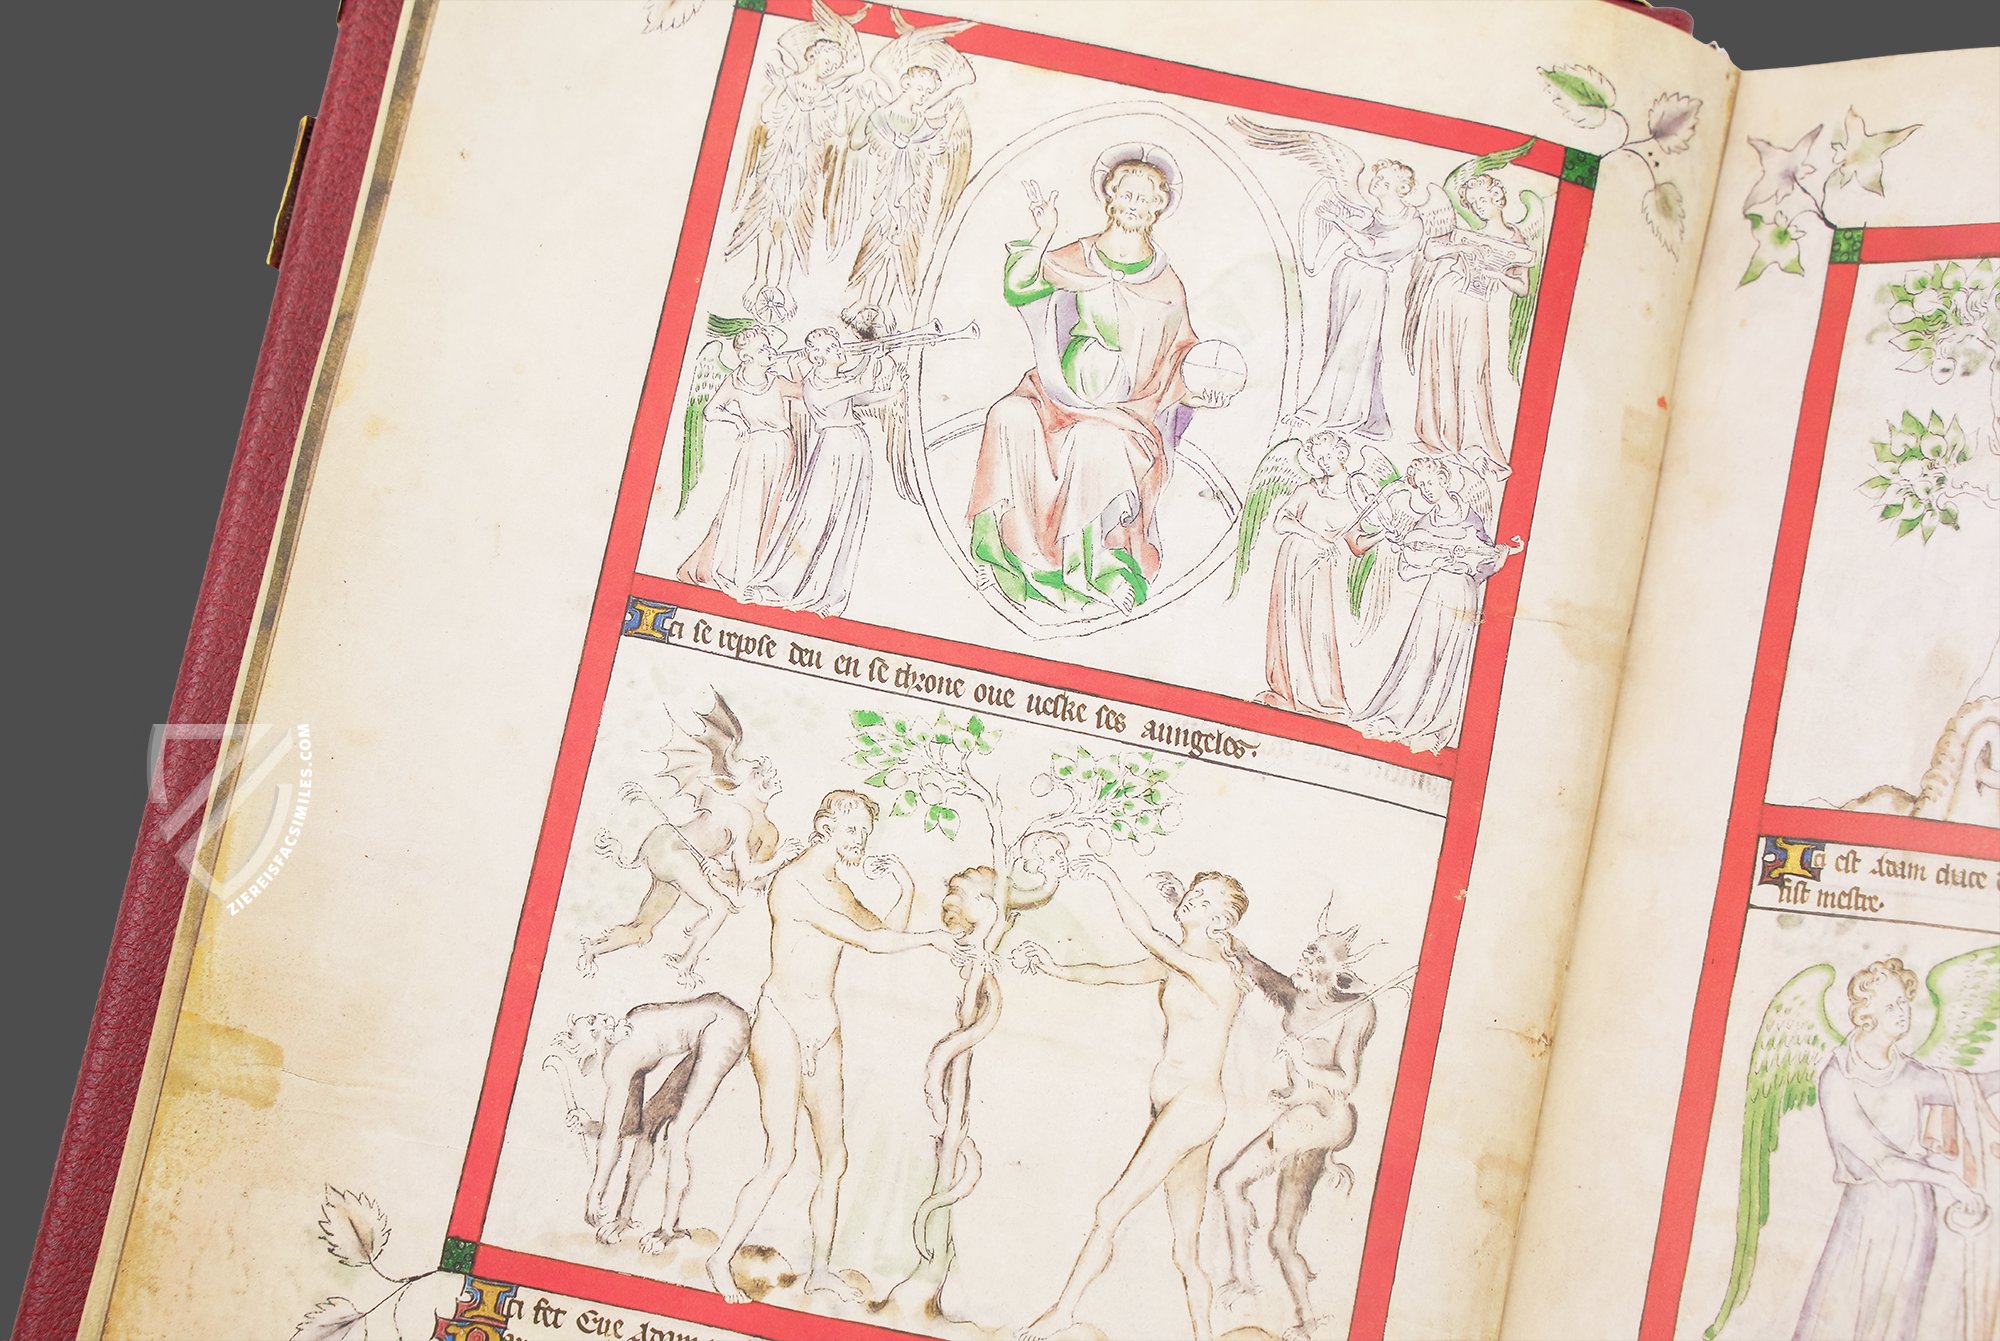 Ici se repose deu en se throne oue ueske ses aungeles.
Ici fet Eue Adam
Ici est Adam
fist mestre.
ZIEREISFACSIMILES.COM